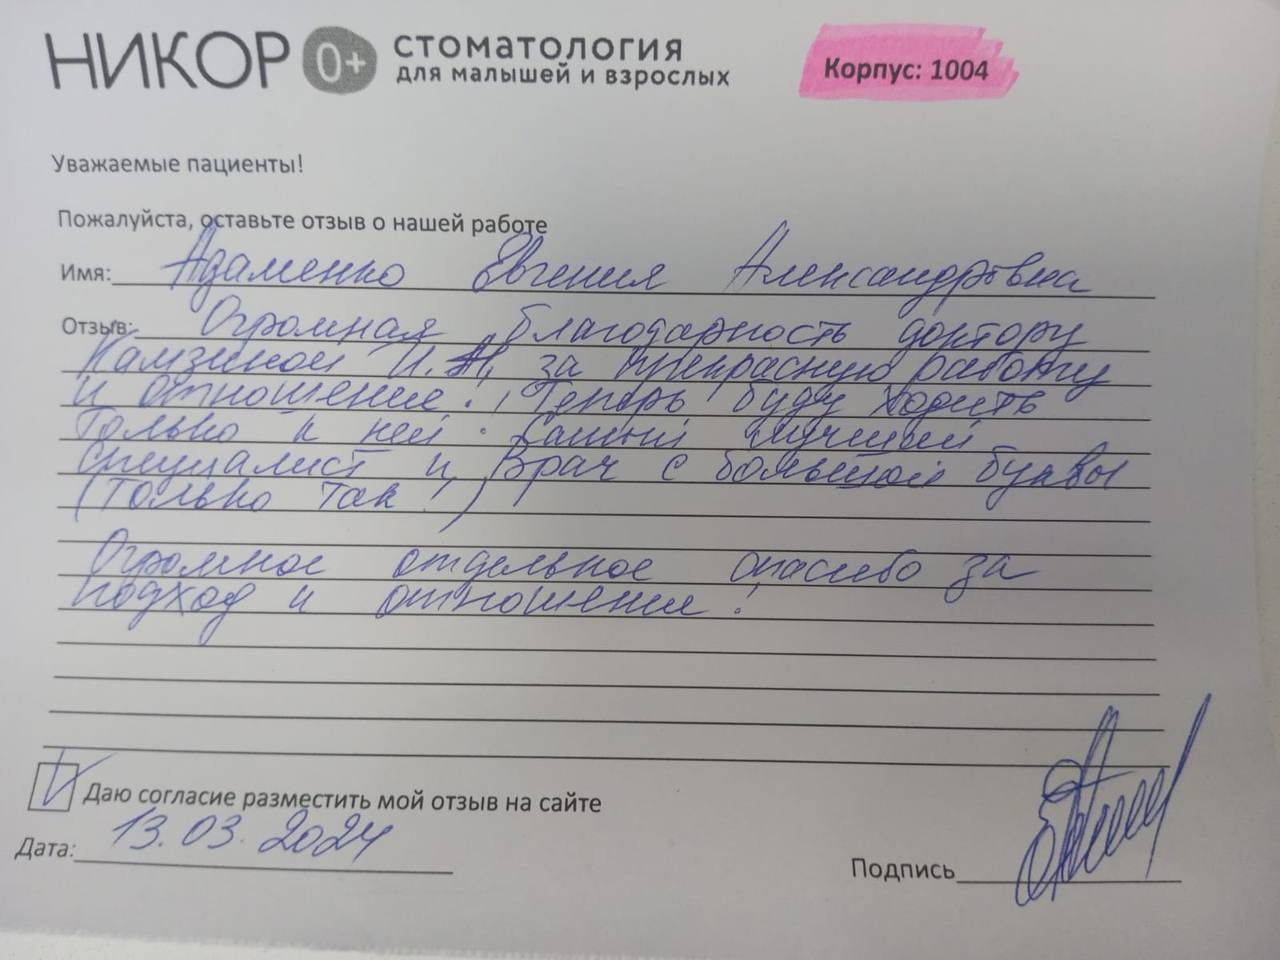 НИКОР 0+ СТОМАТОЛОГИЯ
ДЛЯ МАЛЫШЕЙ И ВЗРОСЛЫХ
Корпус: 1004
Уважаемые пациенты!
Пожалуйста, оставьте отзыв о нашей работе
Имя: Адаменко Евгения Александровна
Отзыв: Огромная благодарность доктору
Камзиной И.М. за прекрасную работу
и отношение! Теперь буду ходить
только к ней. Самый лучший
специалист и Врач с большой буквы
(только так!)
Огромное отдельное спасибо за
подход и отношение!
Даю согласие разместить мой отзыв на сайте
Дата: 13.03.2024
Подпись